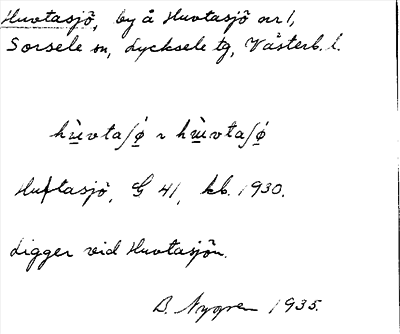 Huvtasjö, by å Huvtasjö nr 1,
Sorsele sn, Lycksele tg, Västerb. l.
hu̲̇vtaʃǿ̲ ~ hu̲̇vtaʃǿ̲
Huftasjö, G 41, kb. 1930.
Ligger vid Huvtasjön.
B. Nygren 1935.